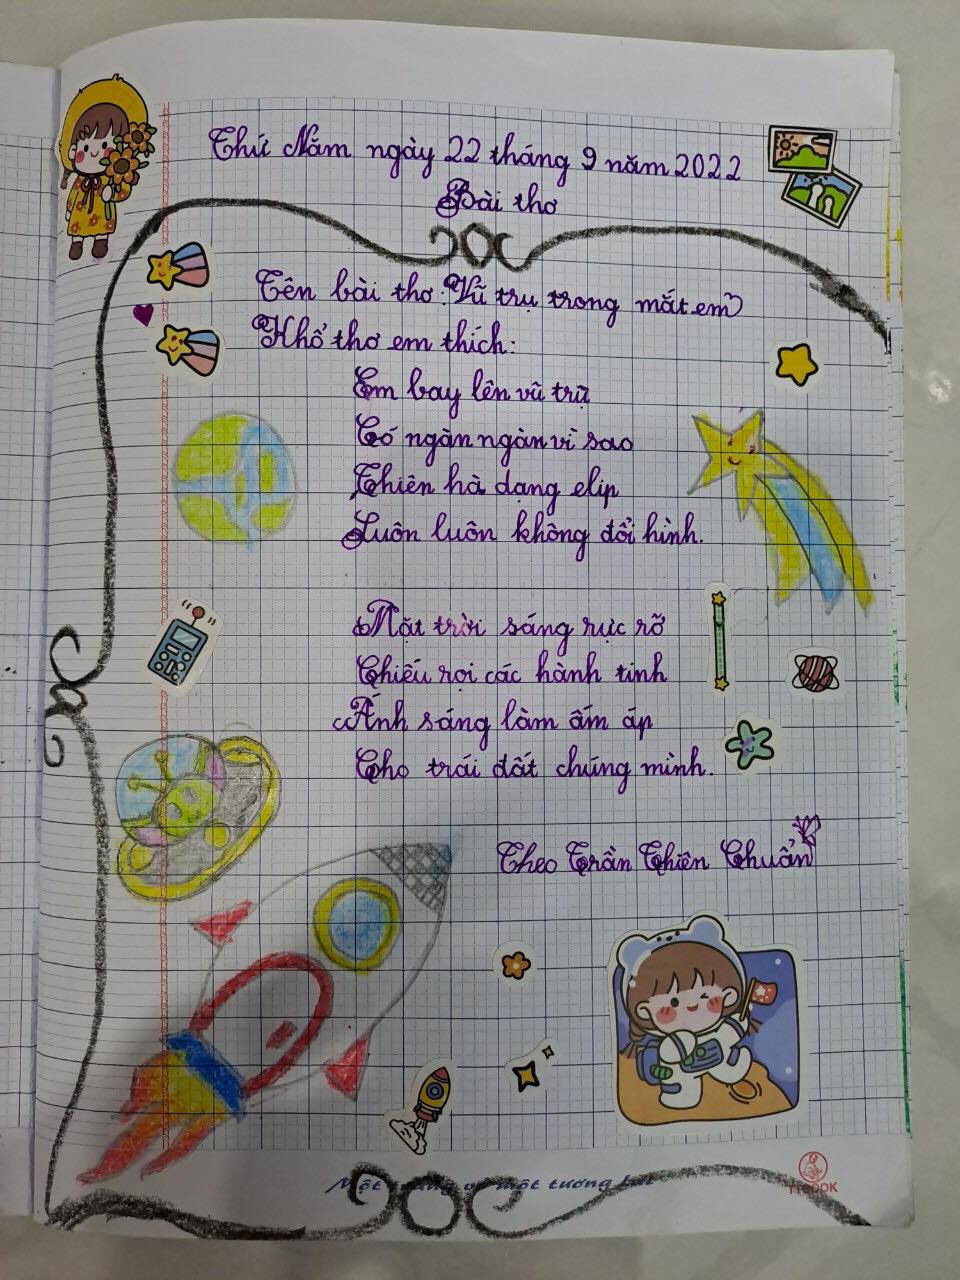 Thứ Năm ngày 22 tháng 9 năm 2022
Bài thơ
Tên bài thơ: Vũ trụ trong mắt em
Khổ thơ em thích:
Em bay lên vũ trụ
Có ngàn ngàn vì sao
Thiên hà dạng elip
Luôn luôn không đổi hình.
Mặt trời sáng rực rỡ
Chiếu rọi các hành tinh
Ánh sáng làm ấm áp
Cho trái đất chúng mình.
Theo Trần Thiên Chuẩn
Một một tương lai